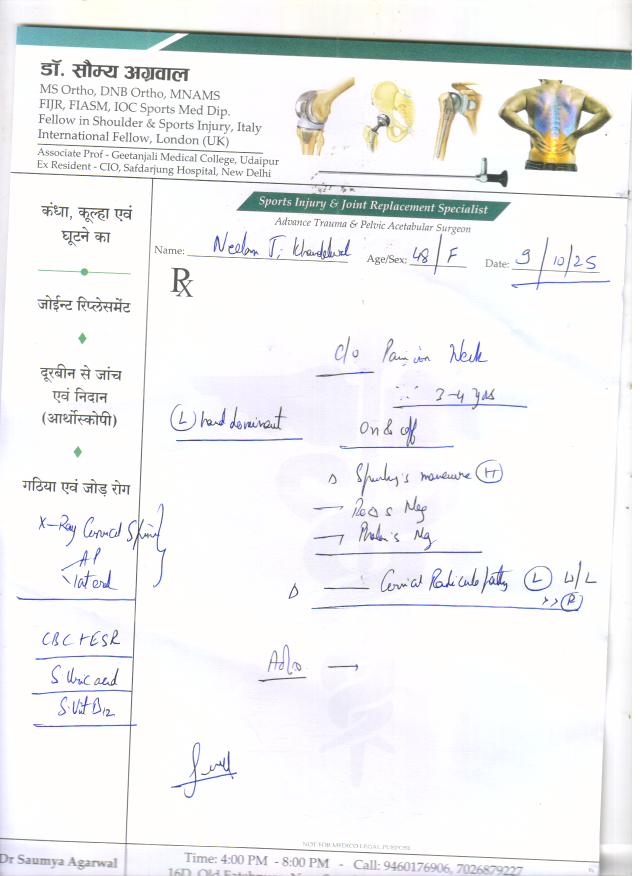 डॉ. सौम्य अग्रवाल
MS Ortho, DNB Ortho, MNAMS
FIJR, FIASM, IOC Sports Med Dip.
Fellow in Shoulder & Sports Injury, Italy
International Fellow, London (UK)
Associate Prof - Geetanjali Medical College, Udaipur
Ex Resident - CIO, Safdarjung Hospital, New Delhi
Sports Injury & Joint Replacement Specialist
Advance Trauma & Pelvic Acetabular Surgeon
Name: Neelam Khandelwal Age/Sex: 48/F Date: 9/10/25
Rx
कंधा, कूल्हा एवं
घूटने का
जोईन्ट रिप्लेसमेंट
दूरबीन से जांच
एवं निदान
(आर्थोस्कोपी)
गठिया एवं जोड़ रोग
X-Ray Cervical Spine
AP
lateral
CBC + ESR
S. Uric acid
S. Vit B12
c/o Pain in Neck
3-4 yrs
(L) hand dominant
On & off
Spurling's maneuver
→ Roos Neg
→ Phalen's Neg
Cervical Radiculopathy (L) U/L
>> (R)
Adv →
NOT FOR MEDICO LEGAL PURPOSE
Dr Saumya Agarwal
Time: 4:00 PM - 8:00 PM - Call: 9460176906, 7026879227